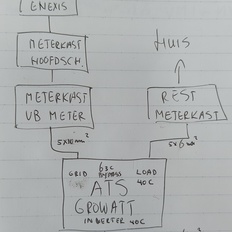 ENEXIS
METERKAST
HOOFDSCH.
HUIS
METERKAST
VB METER
REST
METERKAST
5x10mm²
5x6mm²
GRID
63C
BYPASS
LOAD
40C
ATS
GROWATT
INVERTER 40C